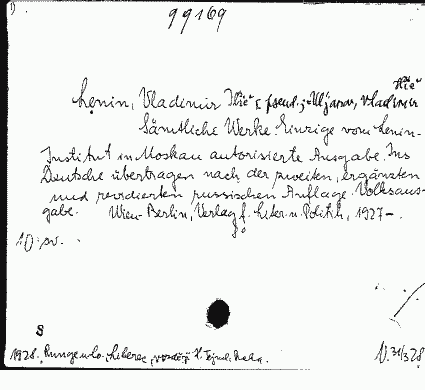 99169
Ilič
Lenin, Vladimir Ilič [pseud.; Uljanov, Vladimir
Sämtliche Werke. Einzige vom Lenin-
Institut in Moskau autorisierte Ausgabe. Ins
Deutsche übertragen nach der zweiten, ergänzten
und revidierten russischen Auflage. Volksaus-
gabe. Wien-Berlin, Verlag f. Liter. u. Politik, 1927 -.
8°
10. sv.
S
1928. Runge u. Co. Liberec,
V. 31/3 28